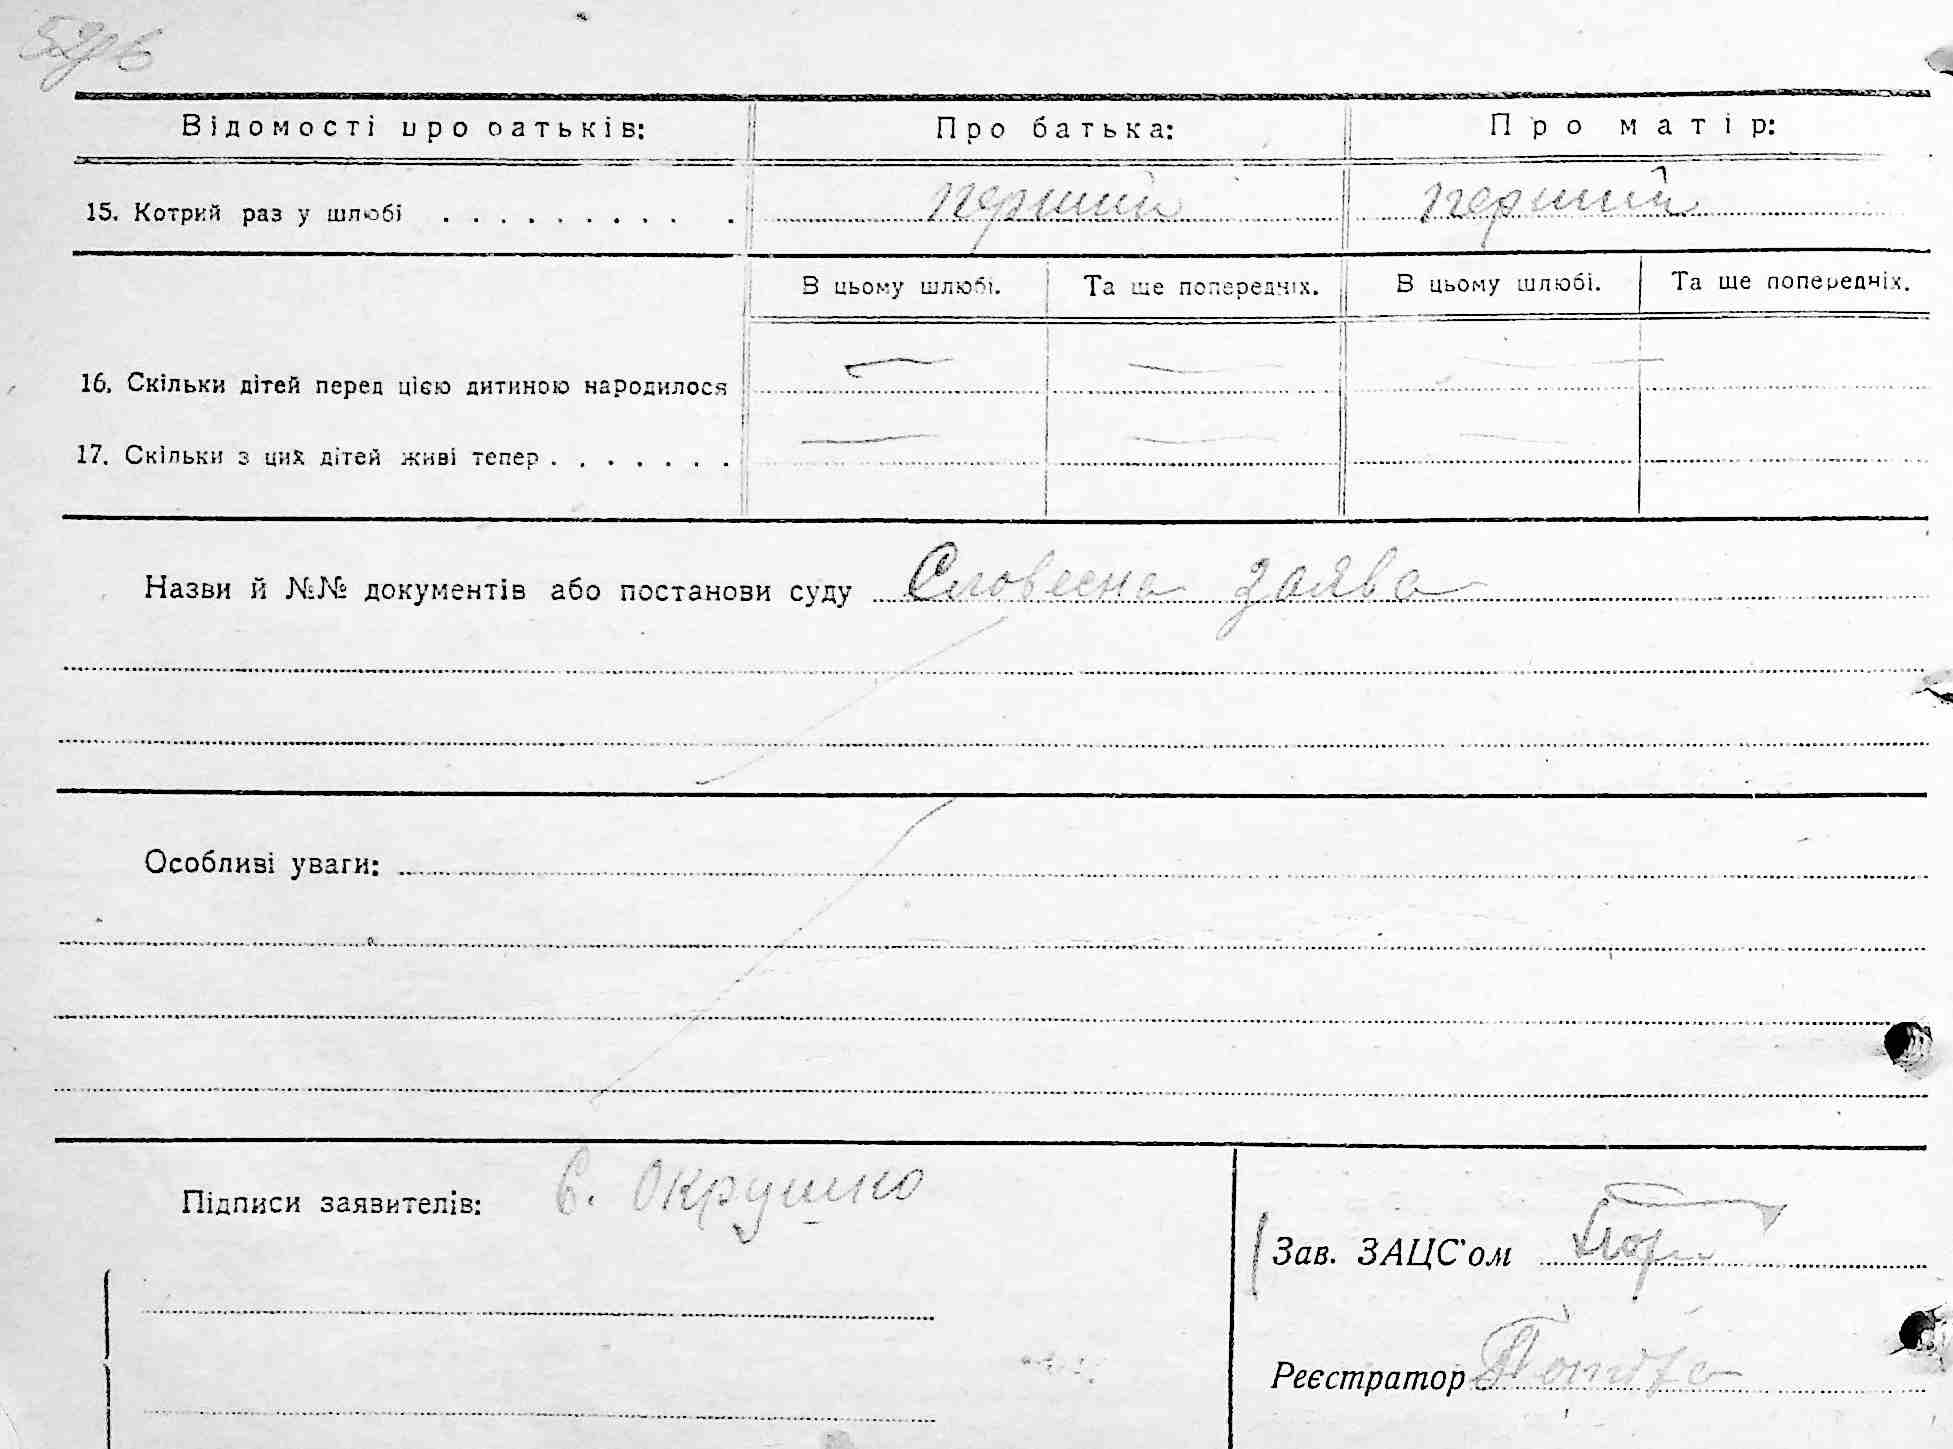 Відомості про батьків: Про батька: Про матір:
15. Котрий раз у шлюбі . . . . . . . . . . перший перший
В цьому шлюбі. Та ще попередніх. В цьому шлюбі. Та ще попередніх.
16. Скільки дітей перед цією дитиною народилося
17. Скільки з цих дітей живі тепер . . . . . . .
Назви й №№ документів або постанови суду Словесна заява
Особливі уваги:
Підписи заявителів: Є. Окрушко
Зав. ЗАЦС'ом
Реєстратор